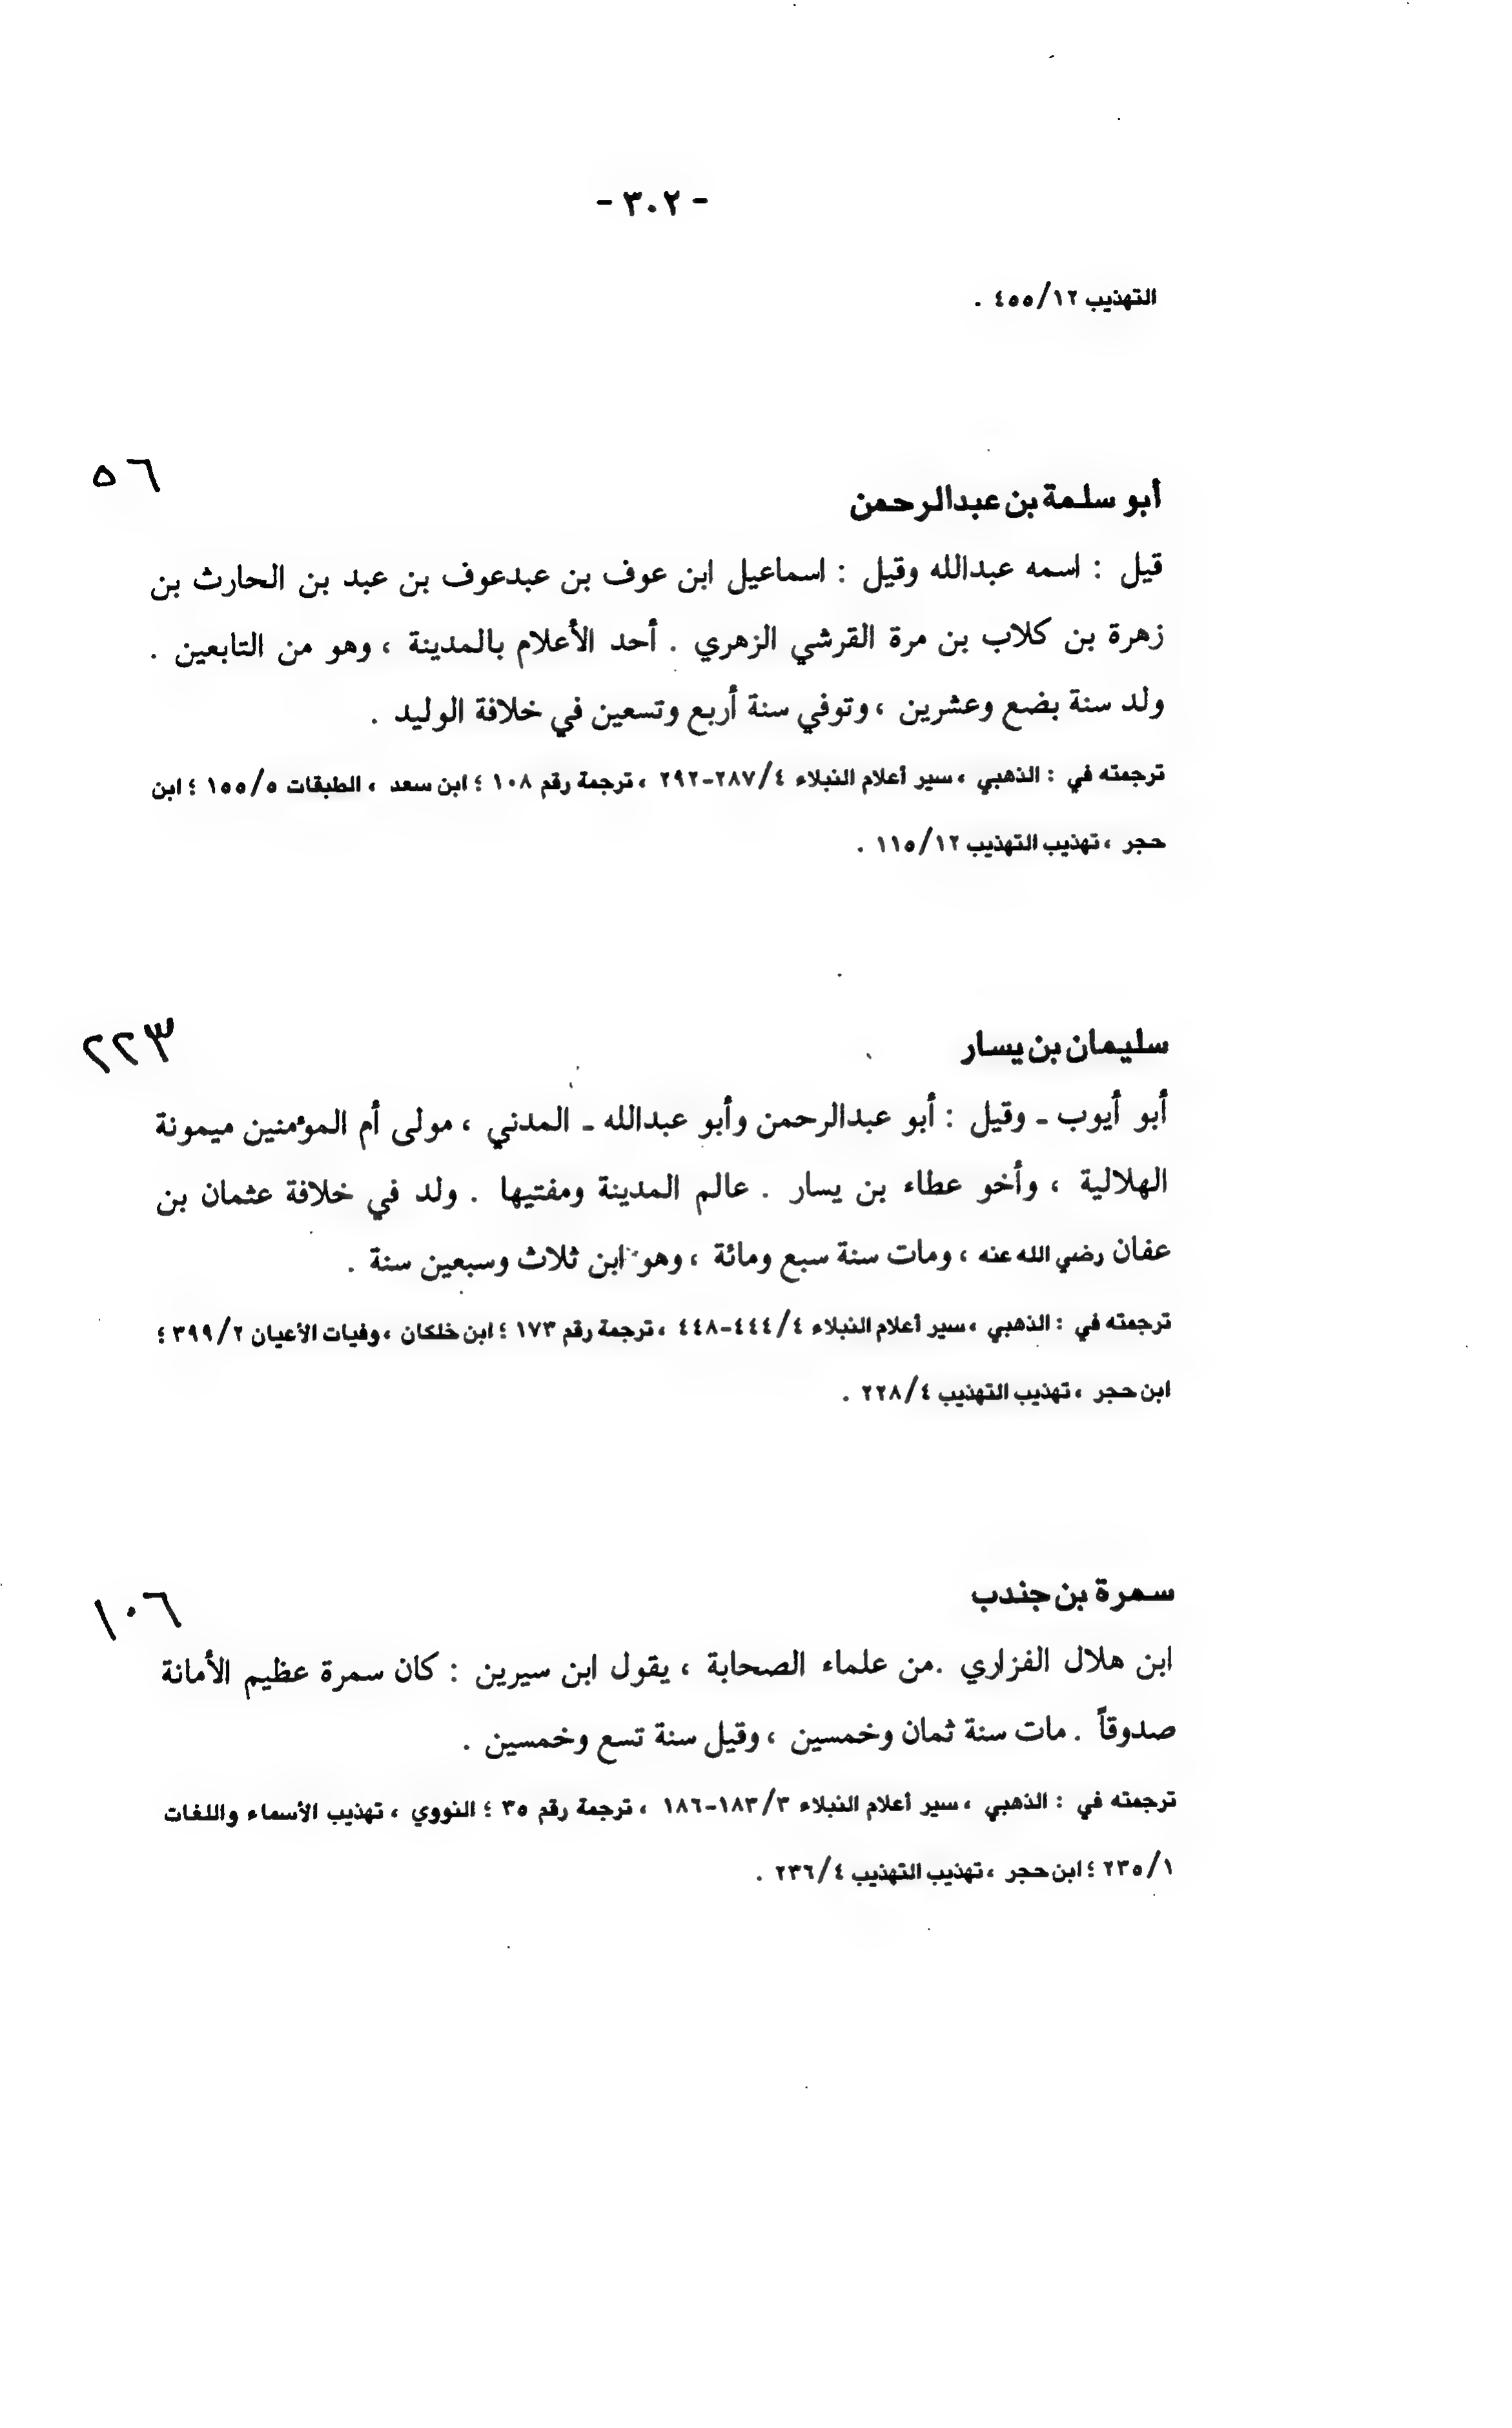 - ٣٠٢ -
التهذيب ٤٥٥/١٢ .
٥٦
أبو سلمة بن عبدالرحمن
قيل : اسمه عبدالله وقيل : اسماعيل ابن عوف بن عبدعوف بن عبد بن الحارث بن
زهرة بن كلاب بن مرة القرشي الزهري . أحد الأعلام بالمدينة ، وهو من التابعين .
ولد سنة بضع وعشرين ، وتوفي سنة أربع وتسعين في خلافة الوليد .
ترجمته في : الذهبي ، سير أعلام النبلاء ٢٨٧/٤-٢٩٢ ، ترجمة رقم ١٠٨ ؛ ابن سعد ، الطبقات ١٥٥/٥ ؛ ابن
حجر ، تهذيب التهذيب ١١٥/١٢ .
٢٢٣
سليمان بن يسار
أبو أيوب ـ وقيل : أبو عبدالرحمن وأبو عبدالله ـ المدني ، مولى أم المؤمنين ميمونة
الهلالية ، وأخو عطاء بن يسار . عالم المدينة ومفتيها . ولد في خلافة عثمان بن
عفان رضي الله عنه ، ومات سنة سبع ومائة ، وهو ابن ثلاث وسبعين سنة .
ترجمته في : الذهبي ، سير أعلام النبلاء ٤٤٤/٤-٤٤٨ ، ترجمة رقم ١٧٣ ؛ ابن خلكان ، وفيات الأعيان ٣٩٩/٢ ؛
ابن حجر ، تهذيب التهذيب ٢٢٨/٤ .
١٠٦
سمرة بن جندب
ابن هلال الفزاري .من علماء الصحابة ، يقول ابن سيرين : كان سمرة عظيم الأمانة
صدوقاً . مات سنة ثمان وخمسين ، وقيل سنة تسع وخمسين .
ترجمته في : الذهبي ، سير أعلام النبلاء ١٨٣/٣-١٨٦ ، ترجمة رقم ٣٥ ؛ النووي ، تهذيب الأسماء واللغات
٢٣٥/١ ؛ ابن حجر ، تهذيب التهذيب ٢٣٦/٤ .